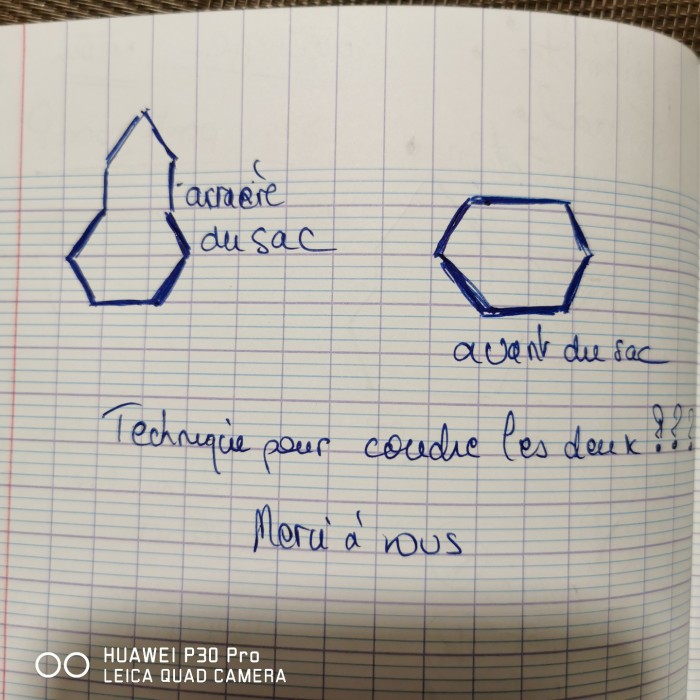 arrière
du sac
avant du sac
Technique pour coudre les deux ???
Merci à vous
HUAWEI P30 Pro
LEICA QUAD CAMERA